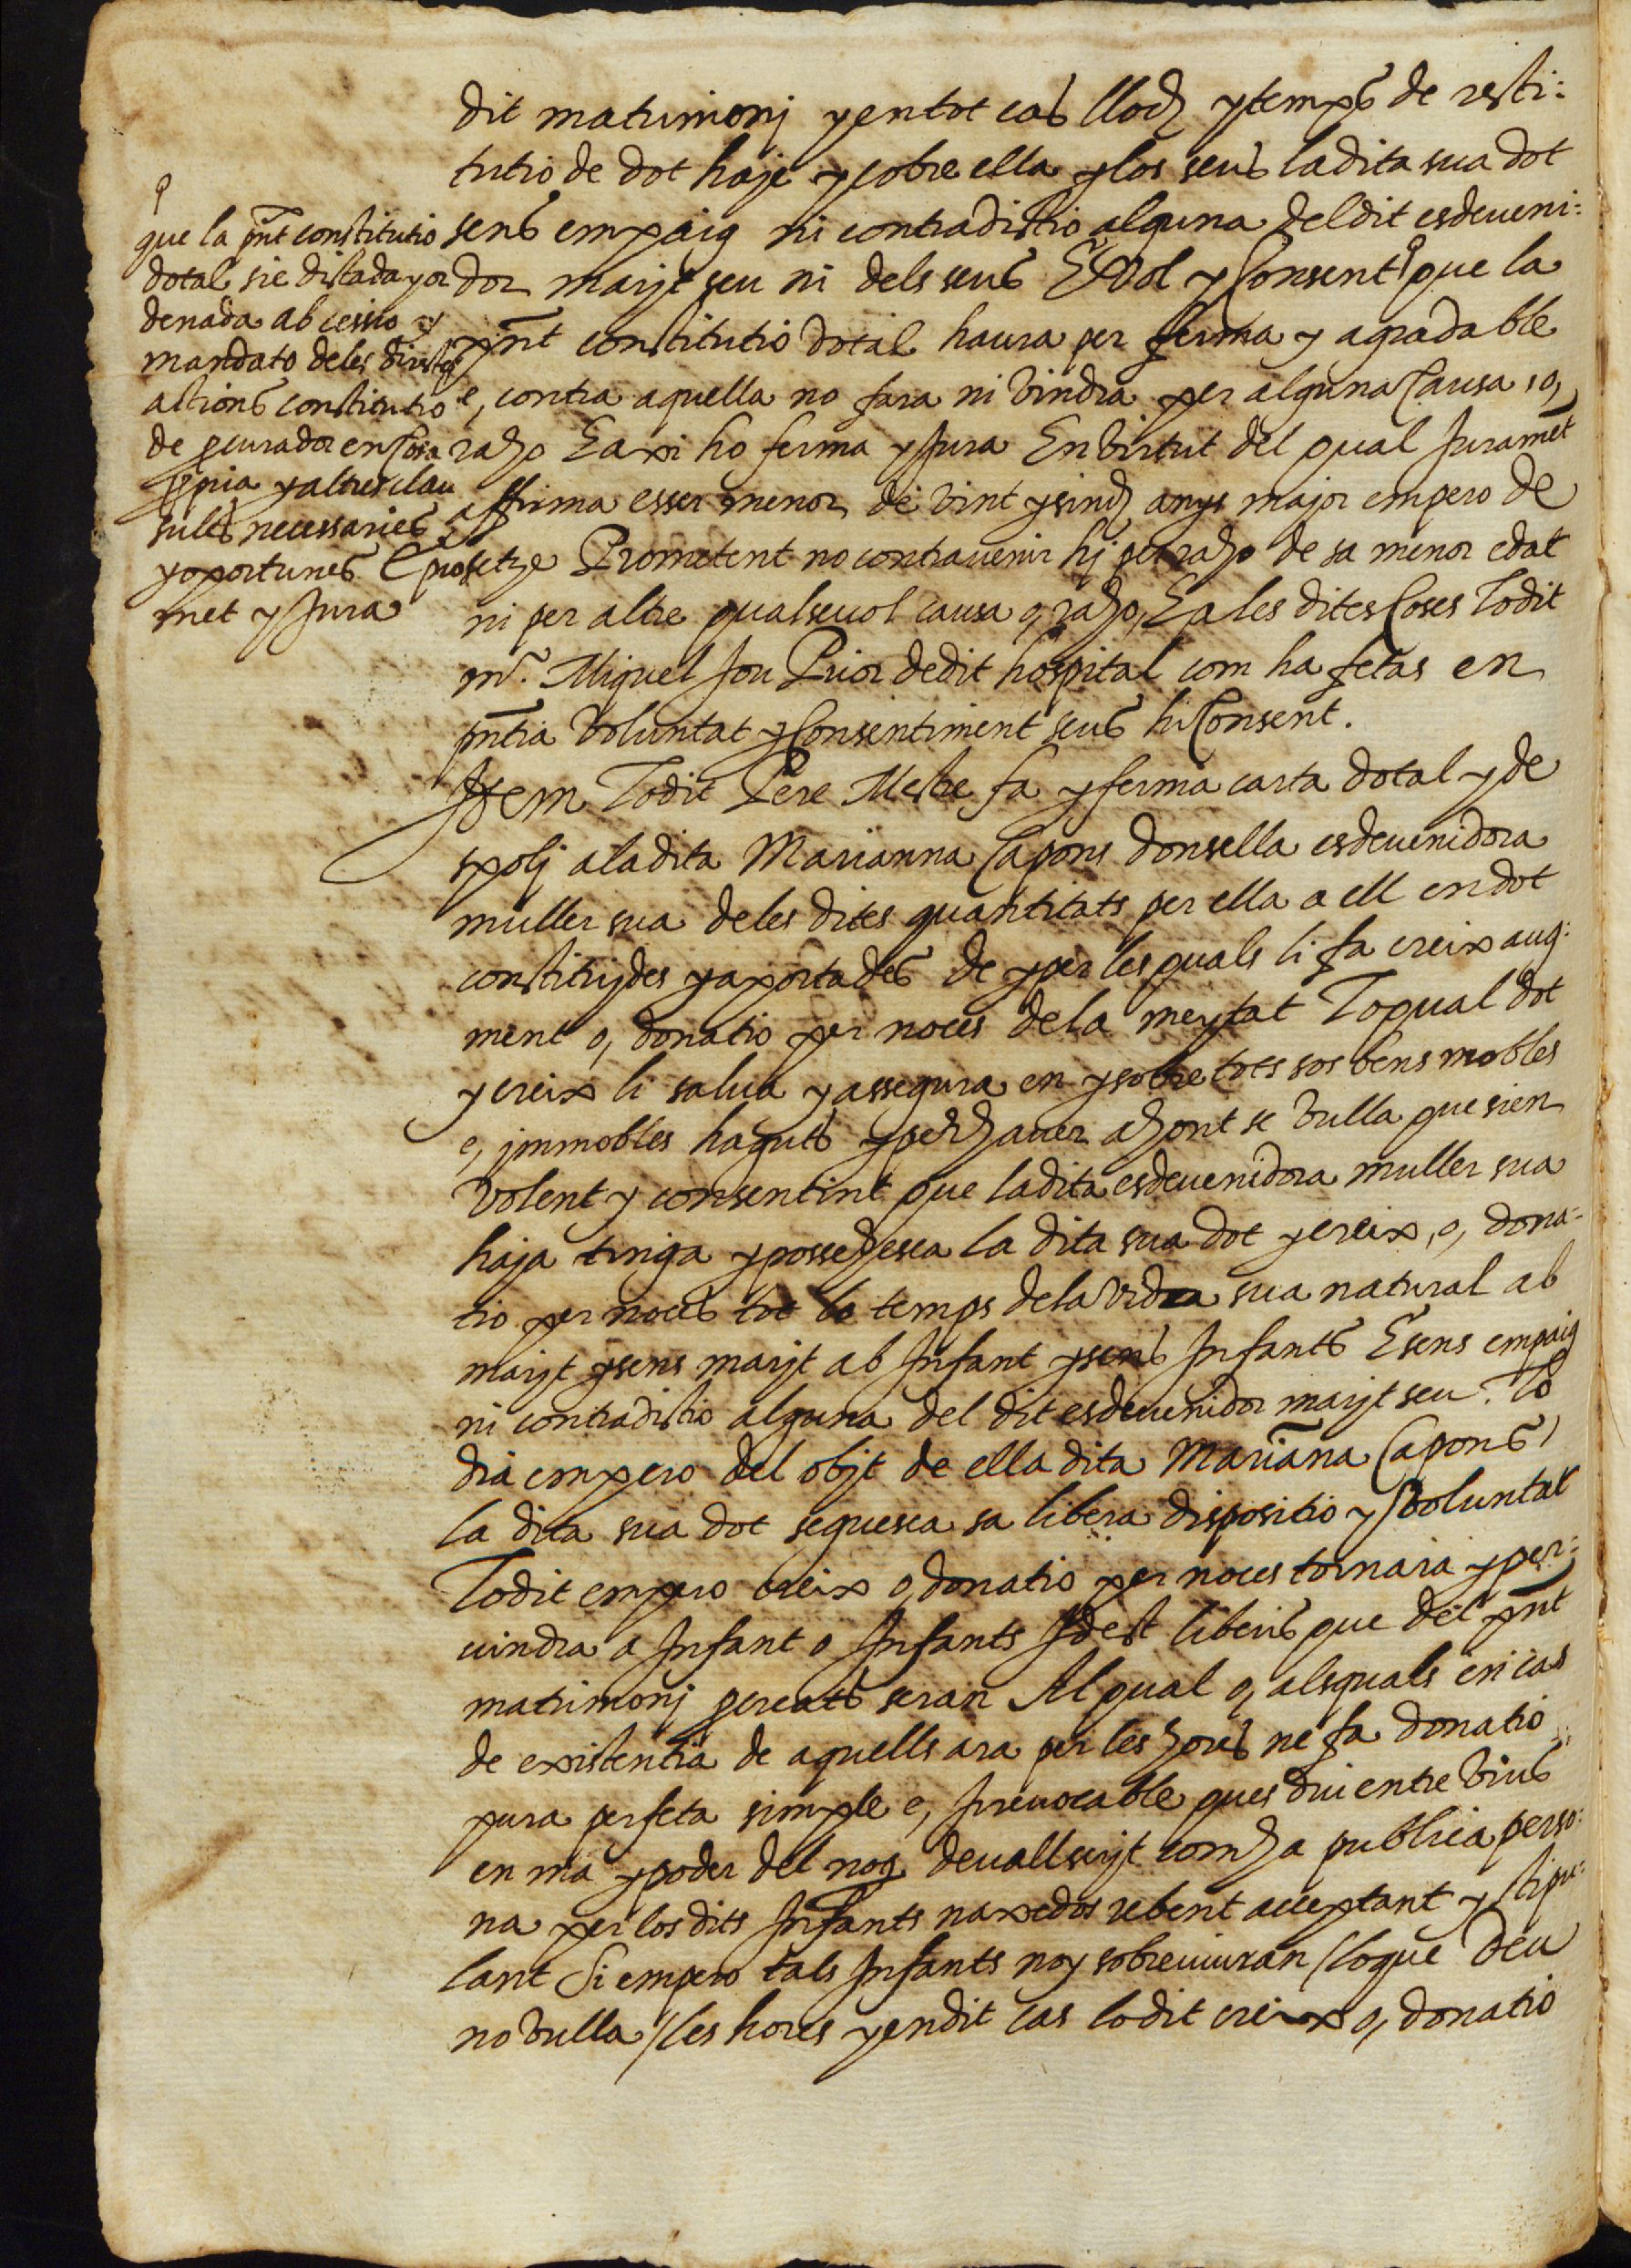 dit matrimonj y en tot cas lloch y temps de resti:
tutio de dot haje y cobre ella y los seus la dita sua dot
sens empaig ni contradictio alguna del dit esdeueni:
dor marjt seu ni dels seus E Vol y Consent que la
pnt constitutio dotal haura per ferma y agradable
e, contra aquella no fara ni vindra per alguna Causa, o,
raho E axi ho ferma y Jura En virtut del qual Jurament
affirma esser menor de vint y sinch anys major empero de
setze Prometent no contrauenir hj per raho de sa menor edat
ni per altre qualseuol causa o, raho, E a les dites Coses lo dit
mr. Miquel Jou Prior de dit hospital com ha fetas en
pntia voluntat y Consentiment seus hi Consent.
Item lo dit Pere Mestre fa y ferma carta dotal y de
spolj a la dita Marianna Capons donsella esdeuenidora
muller sua de les dites quantitats per ella a ell en dot
constituydes y aportades de y per les quals li fa creix aug:
ment o, donatio per noces de la meytat Lo qual dot
y creix li salua y assegura en y sobre tots sos bens mobles
e, jmmobles haguts y per hauer ahont se vulla que sien
volent y consentint que la dita esdeuenidora muller sua
haja tinga y possehesca la dita sua dot y creix, o, dona:
tio per noces tot lo temps de la vida sua natural ab
marjt y sens marjt ab Infant y sens Infants E sens empaig
ni contradictio alguna del dit esdeuenidor marjt seu. Po
dra empero del objt de ella dita Mariana Capons
la dita sua dot seguesca sa libera dispositio y voluntat
Lo dit empero creix o, donatio per noces tornara y per:
uindra a Infant o Infants Idest liberis que del pnt
matrimonj procreats seran Al qual o, als quals en cas
de existentia de aquells ara per les hores ne fa donatio
pura perfeta simple e, Irreuocable ques diu entre vius
en ma y poder del not deuall scrjt com ha publica perso:
na per los dits Infants naxedos rebent acceptant y stipu:
lant Si empero tals Infants noy sobreuiuran / lo que Deu
no vulla / les hores y en dit cas lo dit creix o, donatio
que la pnt constitutio
dotal sie dictada y or
denada ab cessio y
mandato de les direts
actions constitutio
de procurador en Cosa
ppria y altres clau
sules necessaries
y oportunes E pro
met y Jura